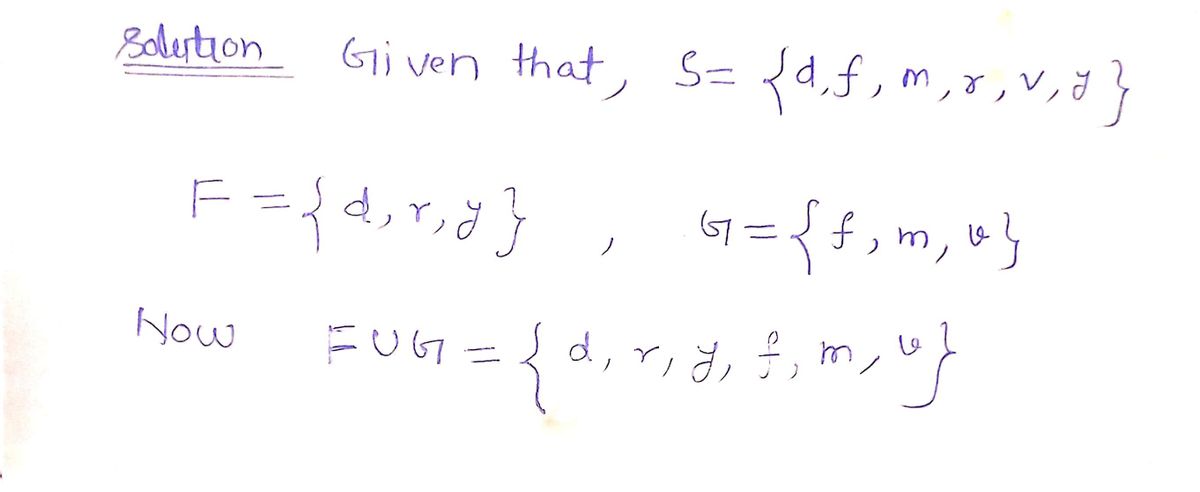 Solution Given that, S= {d,f, m,r,v,y}
F = {d,r,y} , G={f,m,v}
Now F∪G = {d, r, y, f, m, v}